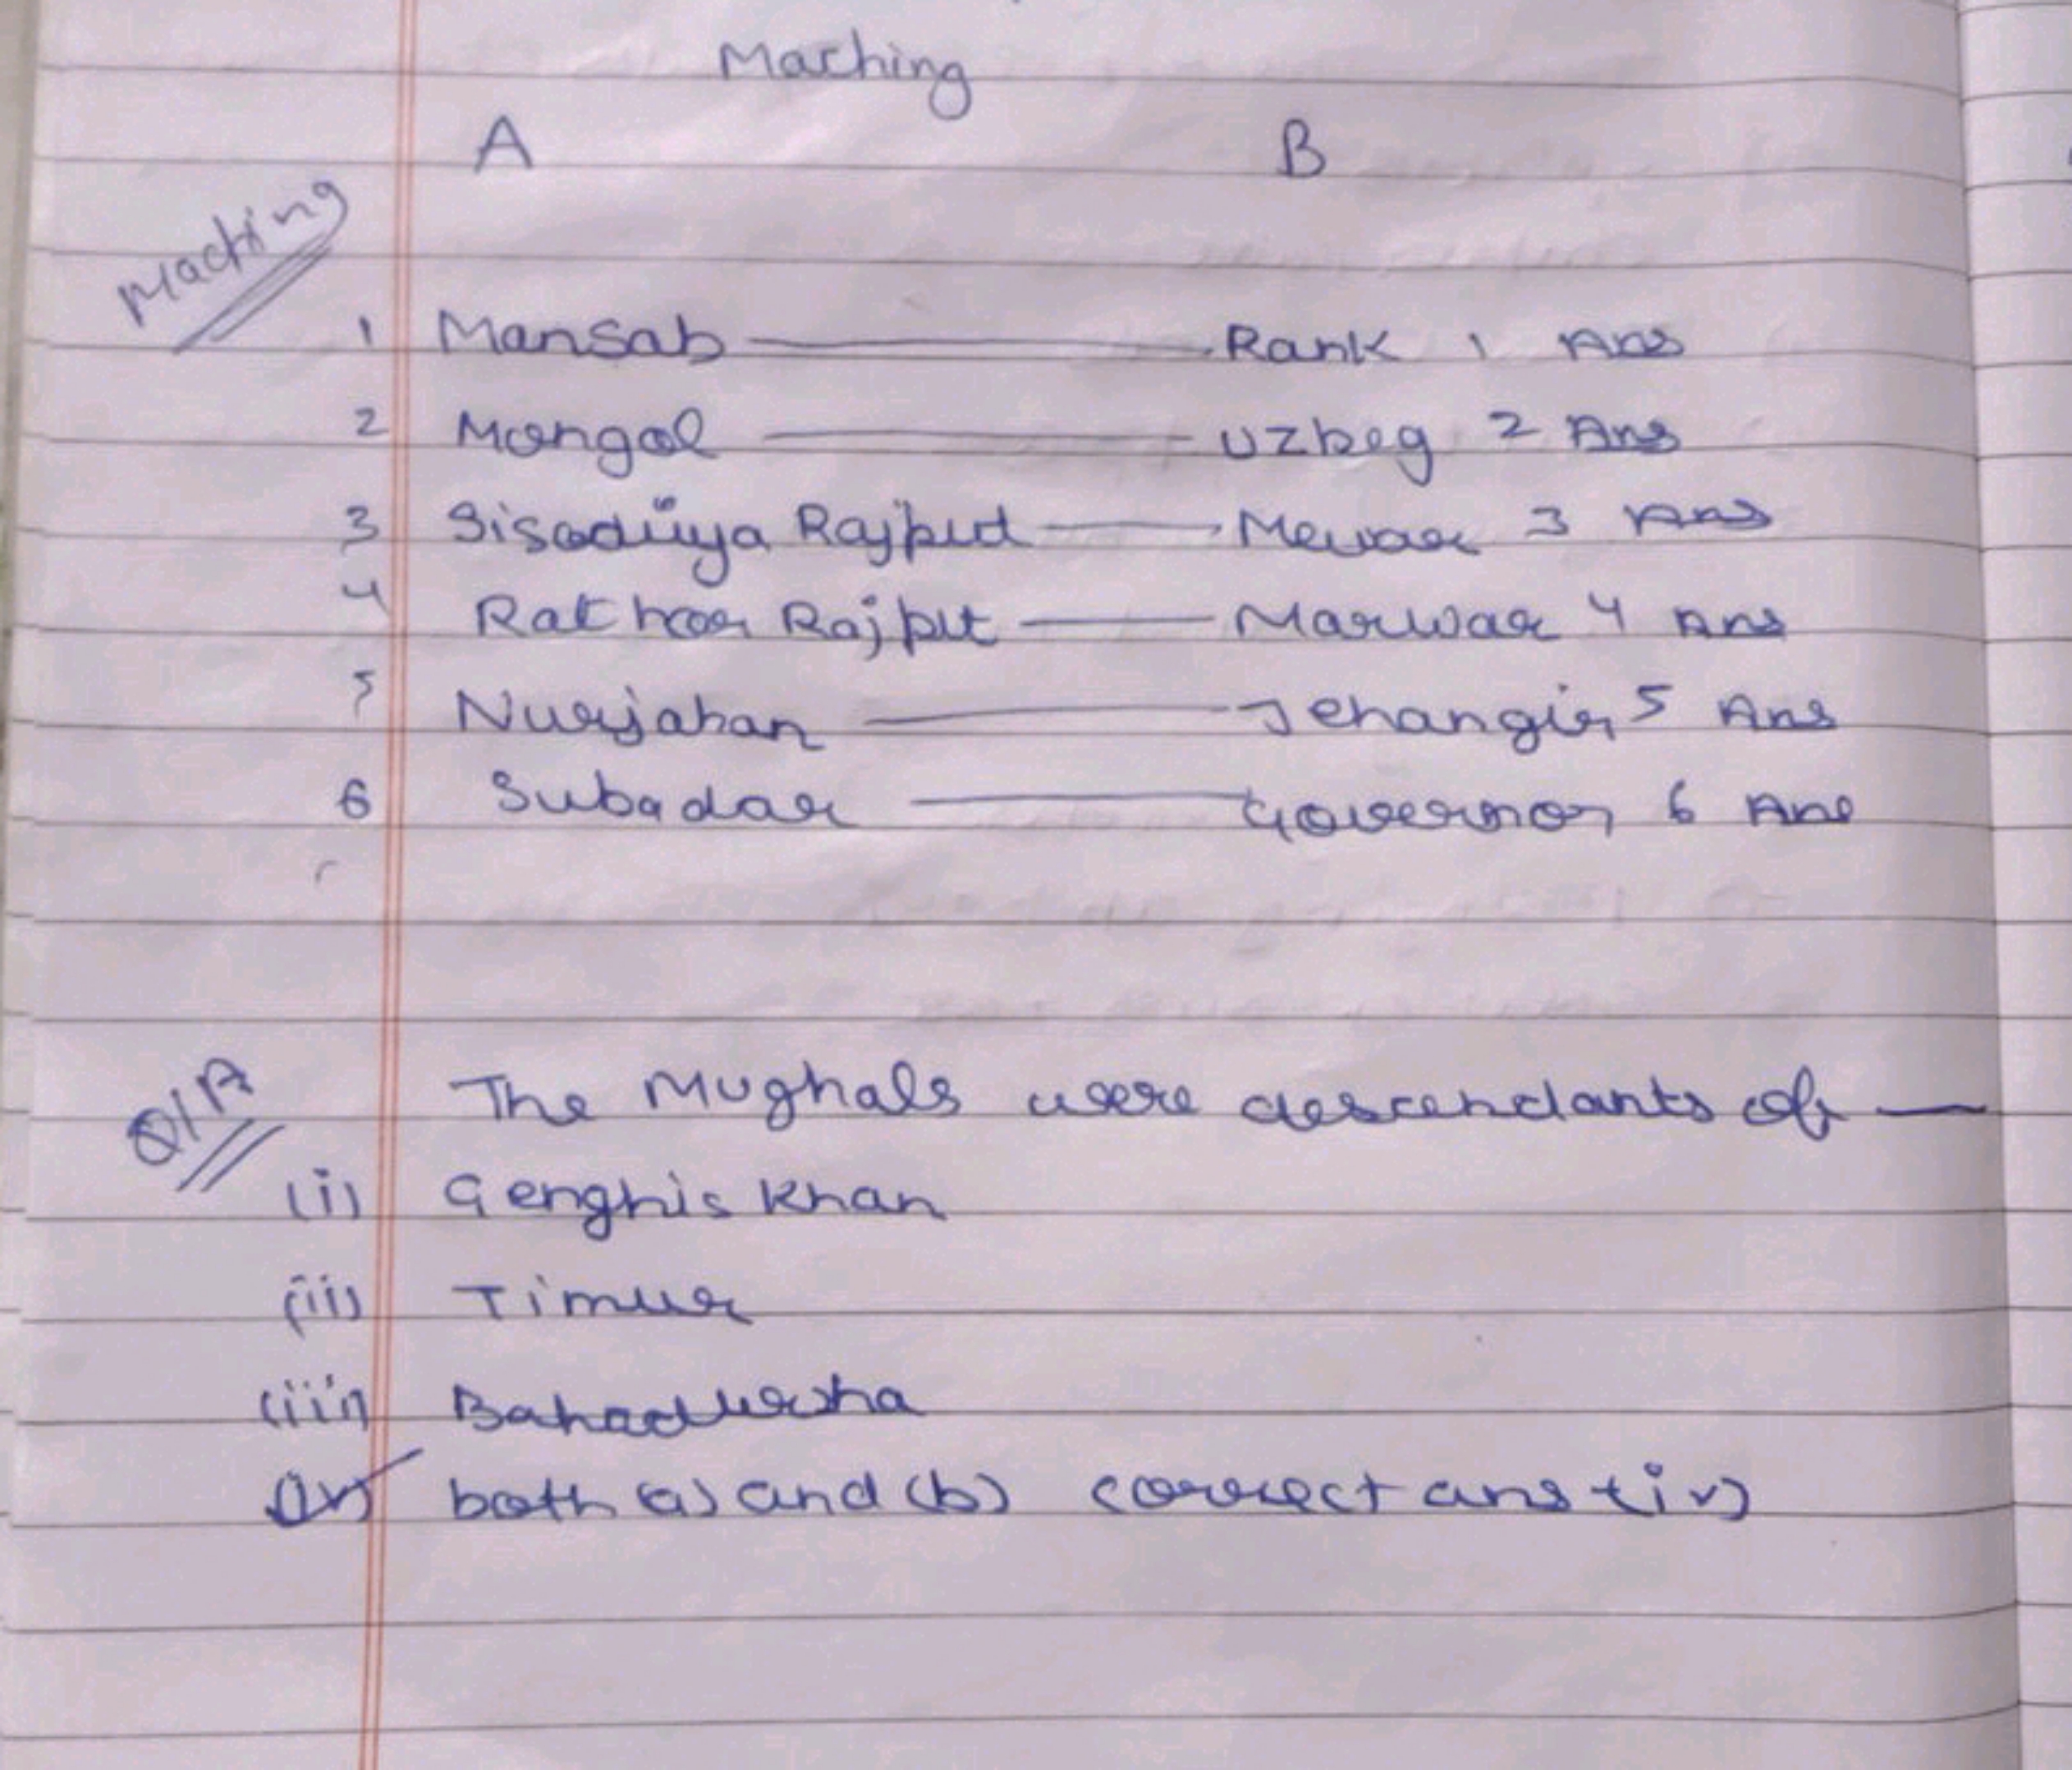 Maching
A B
Maching
1 Mansab — Rank 1 Ans
2 Mongol — Uzbeg 2 Ans
3 Sisodiya Rajput — Mewar 3 Ans
4 Rathor Rajput — Marwar 4 Ans
5 Nurjahan — Jehangir 5 Ans
6 Subadar — Governor 6 Ans
Q/A The Mughals were descendants of —
(i) Genghis Khan
(ii) Timur
(iii) Bahadursha
(iv) both (a) and (b) correct ans (iv)